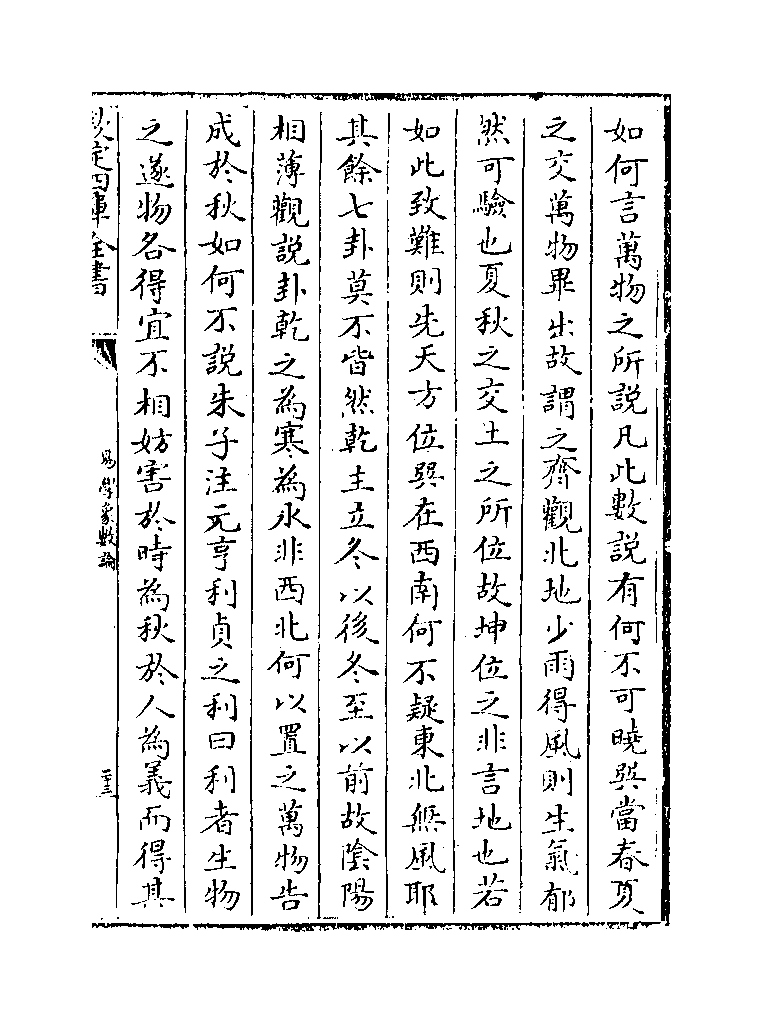 如何言萬物之所說凡此數說有何不可曉巽當春夏
之交萬物畢出故謂之齊觀北地少雨得風則生氣郁
然可驗也夏秋之交土之所位故坤位之非言地也若
如此致難則先天方位巽在西南何不疑東北無風耶
其餘七卦莫不皆然乾主立冬以後冬至以前故陰陽
相薄觀説卦乾之為寒為冰非西北何以置之萬物告
成於秋如何不說朱子注元亨利貞之利曰利者生物
之遂物各得宜不相妨害於時為秋於人為義而得其
欽定四庫全書
易學象數論
二十三